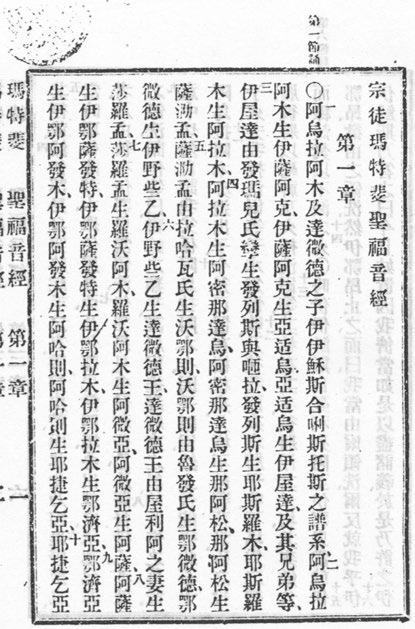 第一節誦
宗徒瑪特斐聖福音經
第一章
〇一阿烏拉阿木及達微德之子伊伊穌斯合唎斯托斯之譜系二阿烏拉
阿木生伊薩阿克伊薩阿克生亞适烏亞适烏生伊屋達及其兄弟等
三伊屋達由發瑪兒氏孿生發列斯與咂拉發列斯生耶斯羅木耶斯羅
木生阿拉木四阿拉木生阿密那達烏阿密那達烏生那阿松那阿松生
薩泐孟五薩泐孟由拉哈瓦氏生沃鄂則沃鄂則由魯發氏生鄂微德鄂
微德生伊野些乙六伊野些乙生達微德王達微德王由屋利阿之妻生
莎羅孟七莎羅孟生羅沃阿木羅沃阿木生阿微亞阿微亞生阿薩八阿薩
生伊鄂薩發特伊鄂薩發特生伊鄂拉木伊鄂拉木生鄂濟亞九鄂濟亞
生伊鄂阿發木伊鄂阿發木生阿哈則阿哈則生耶捷乞亞十耶捷乞亞
瑪特斐 聖福音經 第一章 一